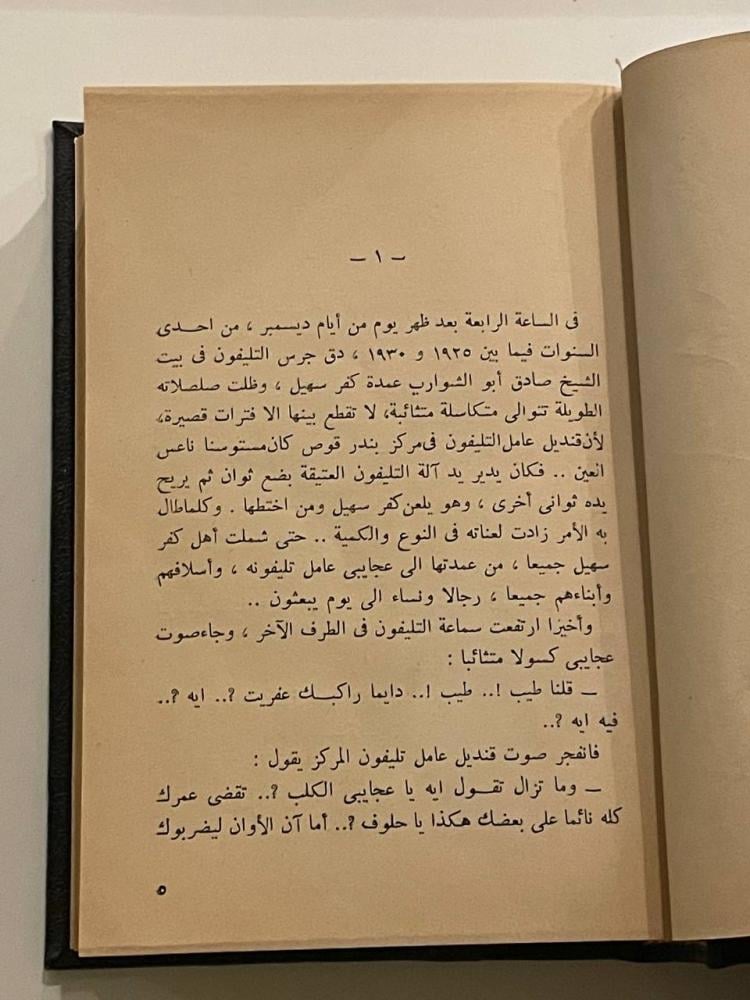 — ١ —
فى الساعة الرابعة بعد ظهر يوم من أيام ديسمبر ، من احــدى
السنوات فيما بين ١٩٢٥ و ١٩٣٠ ، دق جرس التليفون فى بيت
الشيخ صادق أبو الشوارب عمدة كفر سهيل ، وظلت صلصلاته
الطويلة تتوالى متكاسلة متثائبة، لا تقطع بينها الا فترات قصيرة،
لأن قنديل عامل التليفون فى مركز بندر قوص كان مستوسنا ناعس
العين .. فكان يدير يد آلة التليفون العتيقة بضع ثوان ثم يريح
يده ثوانى أخرى ، وهو يلعن كفر سهيل ومن اختطها . وكلما طال
به الأمر زادت لعناته فى النوع والكمية .. حتى شملت أهل كفر
سهيل جميعا ، من عمدتها الى عجايبى عامل تليفونه ، وأسلافهم
وأبناءهم جميعا ، رجالا ونساء الى يوم يبعثون ..
وأخيرا ارتفعت سماعة التليفون فى الطرف الآخر ، وجاء صوت
عجايبى كسولا متثائبا :
— قلنا طيب !.. طيب !.. دايما راكبــك عفريت ؟.. ايه ؟..
فيه ايه ؟..
فانفجر صوت قنديل عامل تليفون المركز يقول :
— وما تزال تقــول ايه يا عجايبى الكلب ؟.. تقضى عمرك
كله نائما على بعضك هكذا يا حلوف ؟.. أما آن الأوان ليضربوك
٥